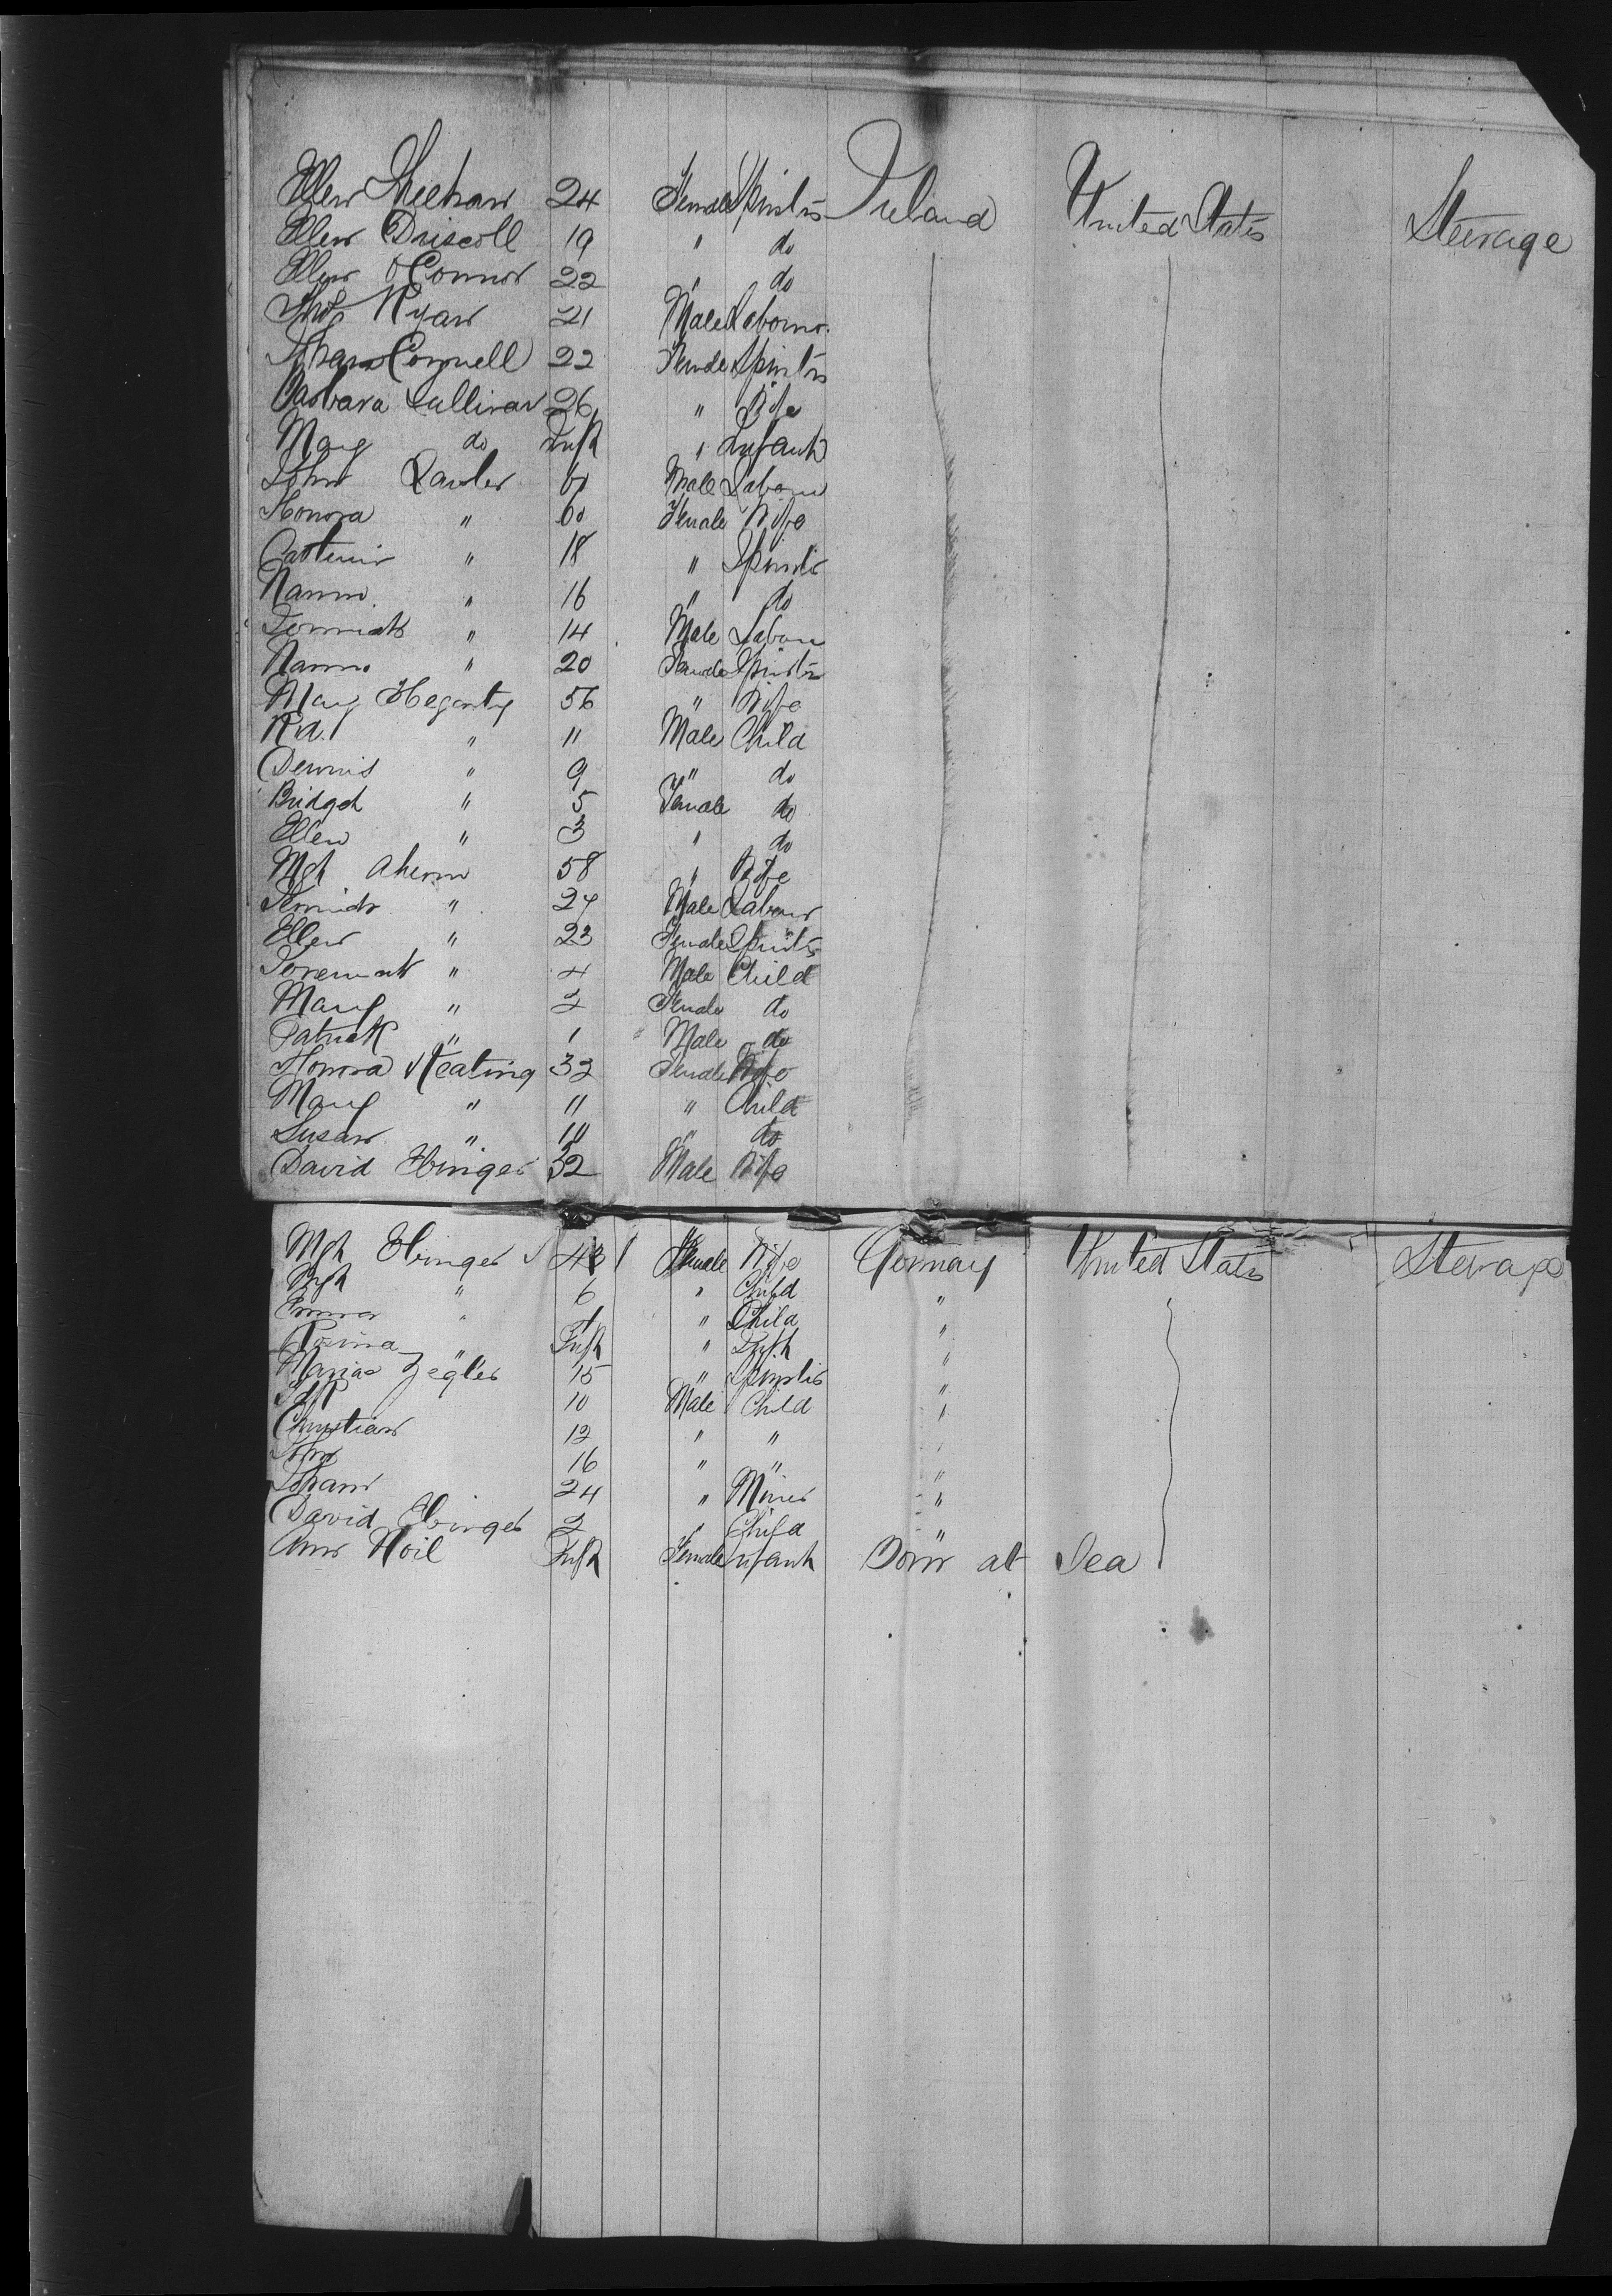 Ellen Sheehan 24 Female Spinstr Ireland United States Steerage
Ellen Driscoll 19 " do
Ellen O'Connor 22 " do
Thos Ryan 21 Male Laborer
Connell 22 Female Spinstr
Barbara Sullivan 26 " Wife
Mary do Inft " Infant
John Lawler 60 Male Laborer
Honora " 60 Female Wife
Catherine " 18 " Spinstr
Nanno " 16 " do
" 14 Male Laborer
Nanno " 20 Female Spinstr
Mary Hegarty 56 " Wife
Rd. " 11 Male Child
Dennis " 9 " do
Bridget " 5 Female do
Ellen " 3 " do
Mgt Ahern 58 " Wife
" 24 Male Laborer
Ellen " 23 Female Spinstr
Jeremiah " 4 Male Child
Mary " 2 Female do
Patrick " 1 Male do
Honora Keating 32 Female Wife
Mary " 11 " Child
Susan " 10 " do
David Ebinger 32 Male Wife
Mgt Ebinger Female Wife Germany United States Steerage
Mgt " 6 " Child "
Emma " 4 " Child "
" Inft " Inft "
Maria Zegler 15 " Spinstr "
10 Male Child "
Christian 12 " "
John 16 " " "
Johann 24 " Miner "
David Ebinger 2 " Child "
Ann Noil Inft Female Infant Born at Sea